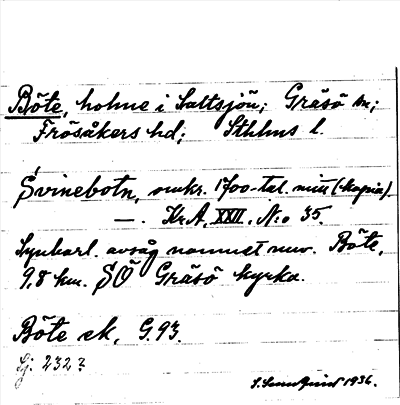 Böte, holme i Saltsjön; Gräsö sn;
Frösåkers hd; Sthlms l.
Svinebotn, omkr. 1700-tal. mitt (kopia).
— . Kr.A, XXII, No 35.
Synbarl. avsåg namnet nuv. Böte,
9,8 km. SÖ Gräsö kyrka.
Böte ek, G.93.
Lj: 232?
1936.